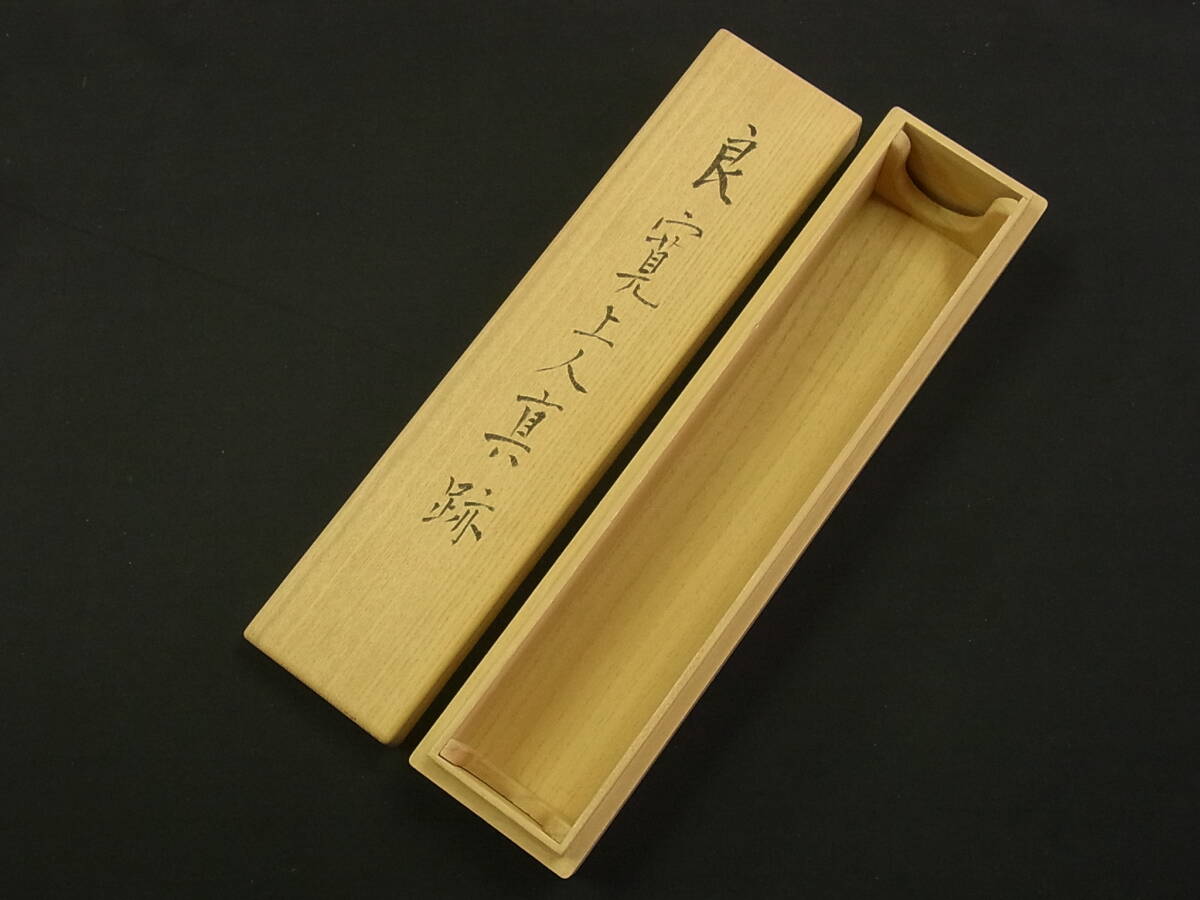 良寛上人真跡